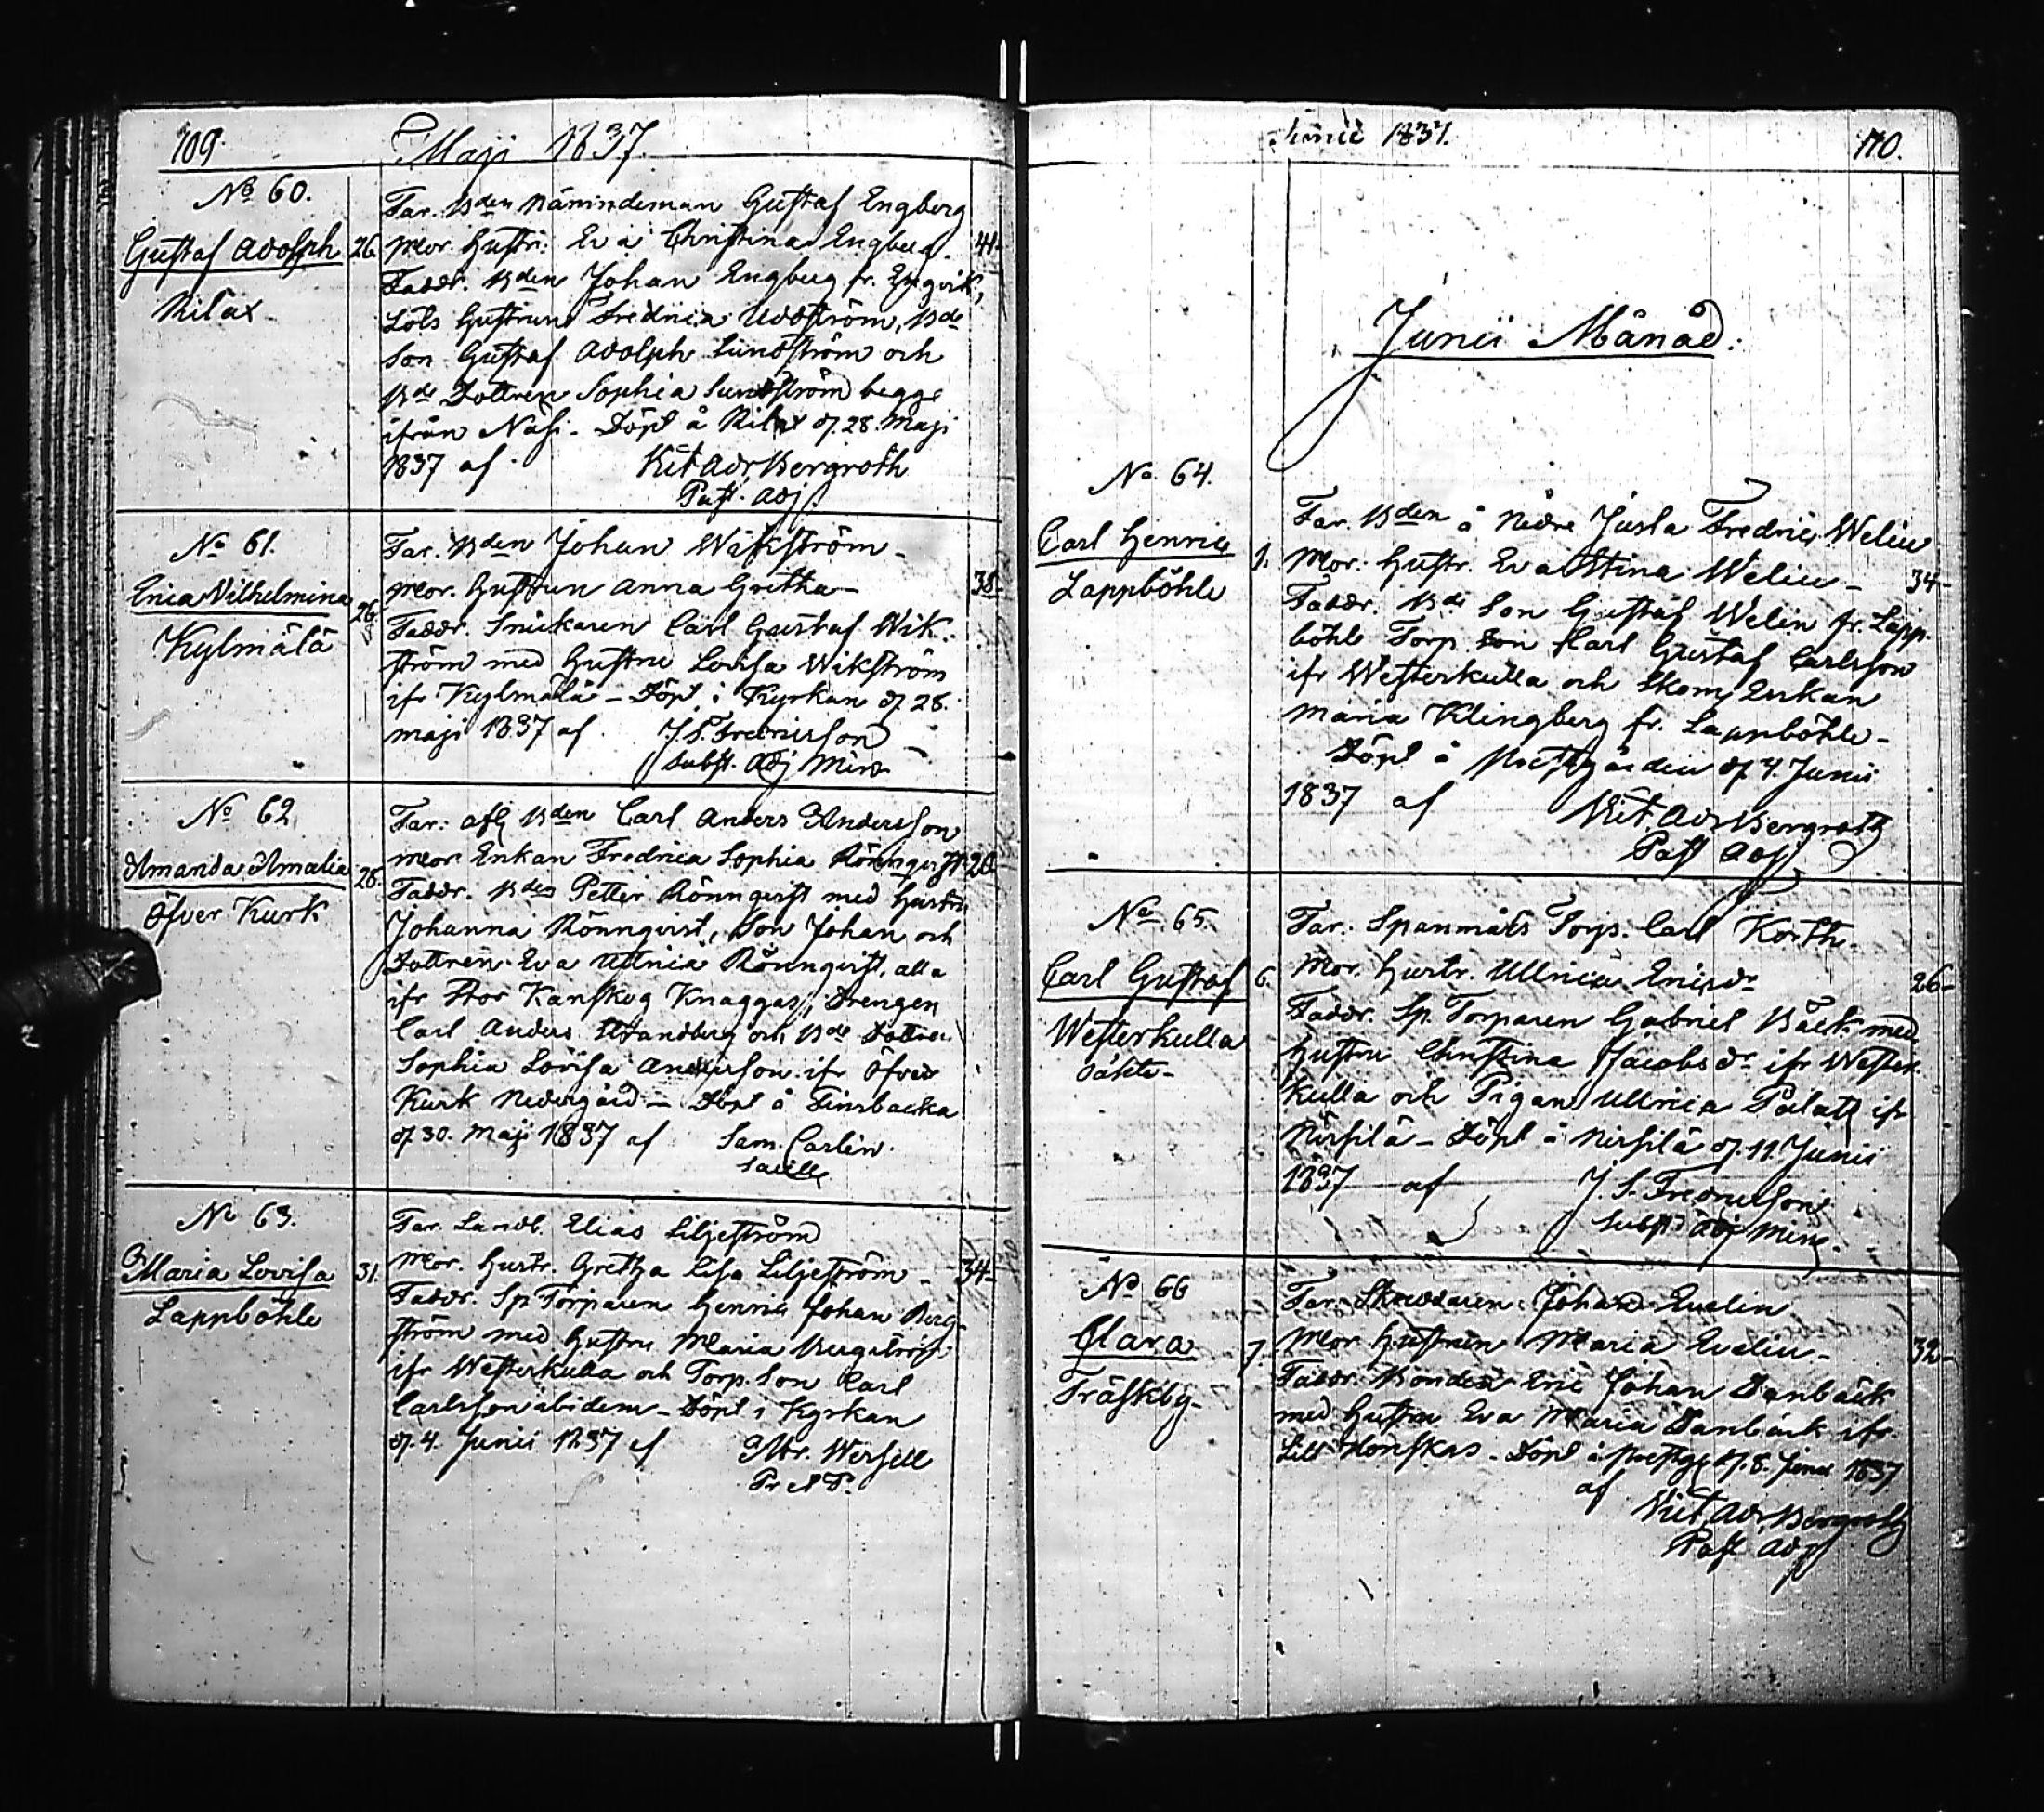 109.
Maji 1837.
No 60.
Gustaf Adolph 26.
Rilax
Far. Bden Nämindeman Gustaf Engberg
Mor. Hustr. Eva Christina Engberg. 41-
Faddr. Bden Johan Engberg fr. Engvik,
Löts Hustrun Fredrica Uddström, Bde
Son Gustaf Adolph Sundström och
Bde Dottren Sophia Sundström begge
ifrån Näse - Döpt å Rilax d. 28. Maji
1837 af Vict Adr Bergroth
Past. Adj.
No 61.
Erica Wilhelmina 26.
Kylmälä
Far. Bden Johan Wikström -
Mor. Hustrun Anna Gretha - 38-
Faddr. Snickaren Carl Gustaf Wik-
ström med Hustru Lovisa Wikström
ifr Kylmälä - Döpt i Kyrkan d. 28.
Maji 1837 af J. S. Fredricson
Subst. Adj Min
No 62
Amanda Amalia 28.
Öfver Kurk
Far: afl Bden Carl Anders Andersson
Mor Enkan Fredrica Sophia Rönnqvist 20
Faddr. Bden Petter Rönnqvist med Hustru
Johanna Rönnqvist, Son Johan och
Dottren Eva Ulrica Rönnqvist, alla
ifr Stor Kanskog Knaggas, Drengen
Carl Anders Strandberg och Bde Dottren
Sophia Lovisa Andersson ifr Öfver
Kurk Nedergård - Döpt å Finsbacka
d. 30. Maji 1837 af Sam. Carlin.
Sacell
No 63.
Maria Lovisa 31.
Lappböhle
Far. Landb. Elias Liljeström
Mor. Hustr. Gretha Lisa Liljeström - 34-
Faddr. Sp Torparen Henric Johan Berg-
ström med Hustru Maria Bergström
ifr Westerkulla och Torp. Son Carl
Carlsson ibidem - Döpt i Kyrkan
d. 4. Junii 1837 af Abr. Wersell
Pr et P.
Junii 1837.
110.
Junii Månad.
No 64.
Carl Henric 1.
Lappböhle
Far. Bden å Nedre Jusla Fredric Welin
Mor: Hustr. Eva Stina Welin - 34-
Faddr. Bde Son Gustaf Welin fr. Lapp-
böhle Torp. Son Karl Gustaf Carlsson
ifr Westerkulla och Skom. Enkan
Maria Klingberg fr. Lappböhle -
Döpt å Prestgården d. 4. Junii
1837 af Vict. Adr Bergroth
Past Adj
No 65.
Carl Gustaf 6.
Westerkulla
Far. Spanmåls Torp. Carl Korth.
Mor. Hustr. Ullrica Ericsdr 26-
Faddr. Sp. Torparen Gabriel Bäck med
Hustru Christina Jacobsdr ifr Wester-
kulla och Pigan Ullrica Palatz ifr
Nirsilä - Döpt å Nirsilä d. 11. Junii
1837 af J. S. Fredricson
Subst Adj Min.
No 66
Clara 7.
Träskby-
Far. Skreddaren Johan Evelin
Mor Hustrun Maria Evelin - 32-
Faddr. Bonden Eric Johan Danbäck
med Hustru Eva Maria Danbäck ifr
Lill Honskas - Döpt å Prestg. d. 8. Junii 1837
af Vict. Adr Bergroth
Past Adj